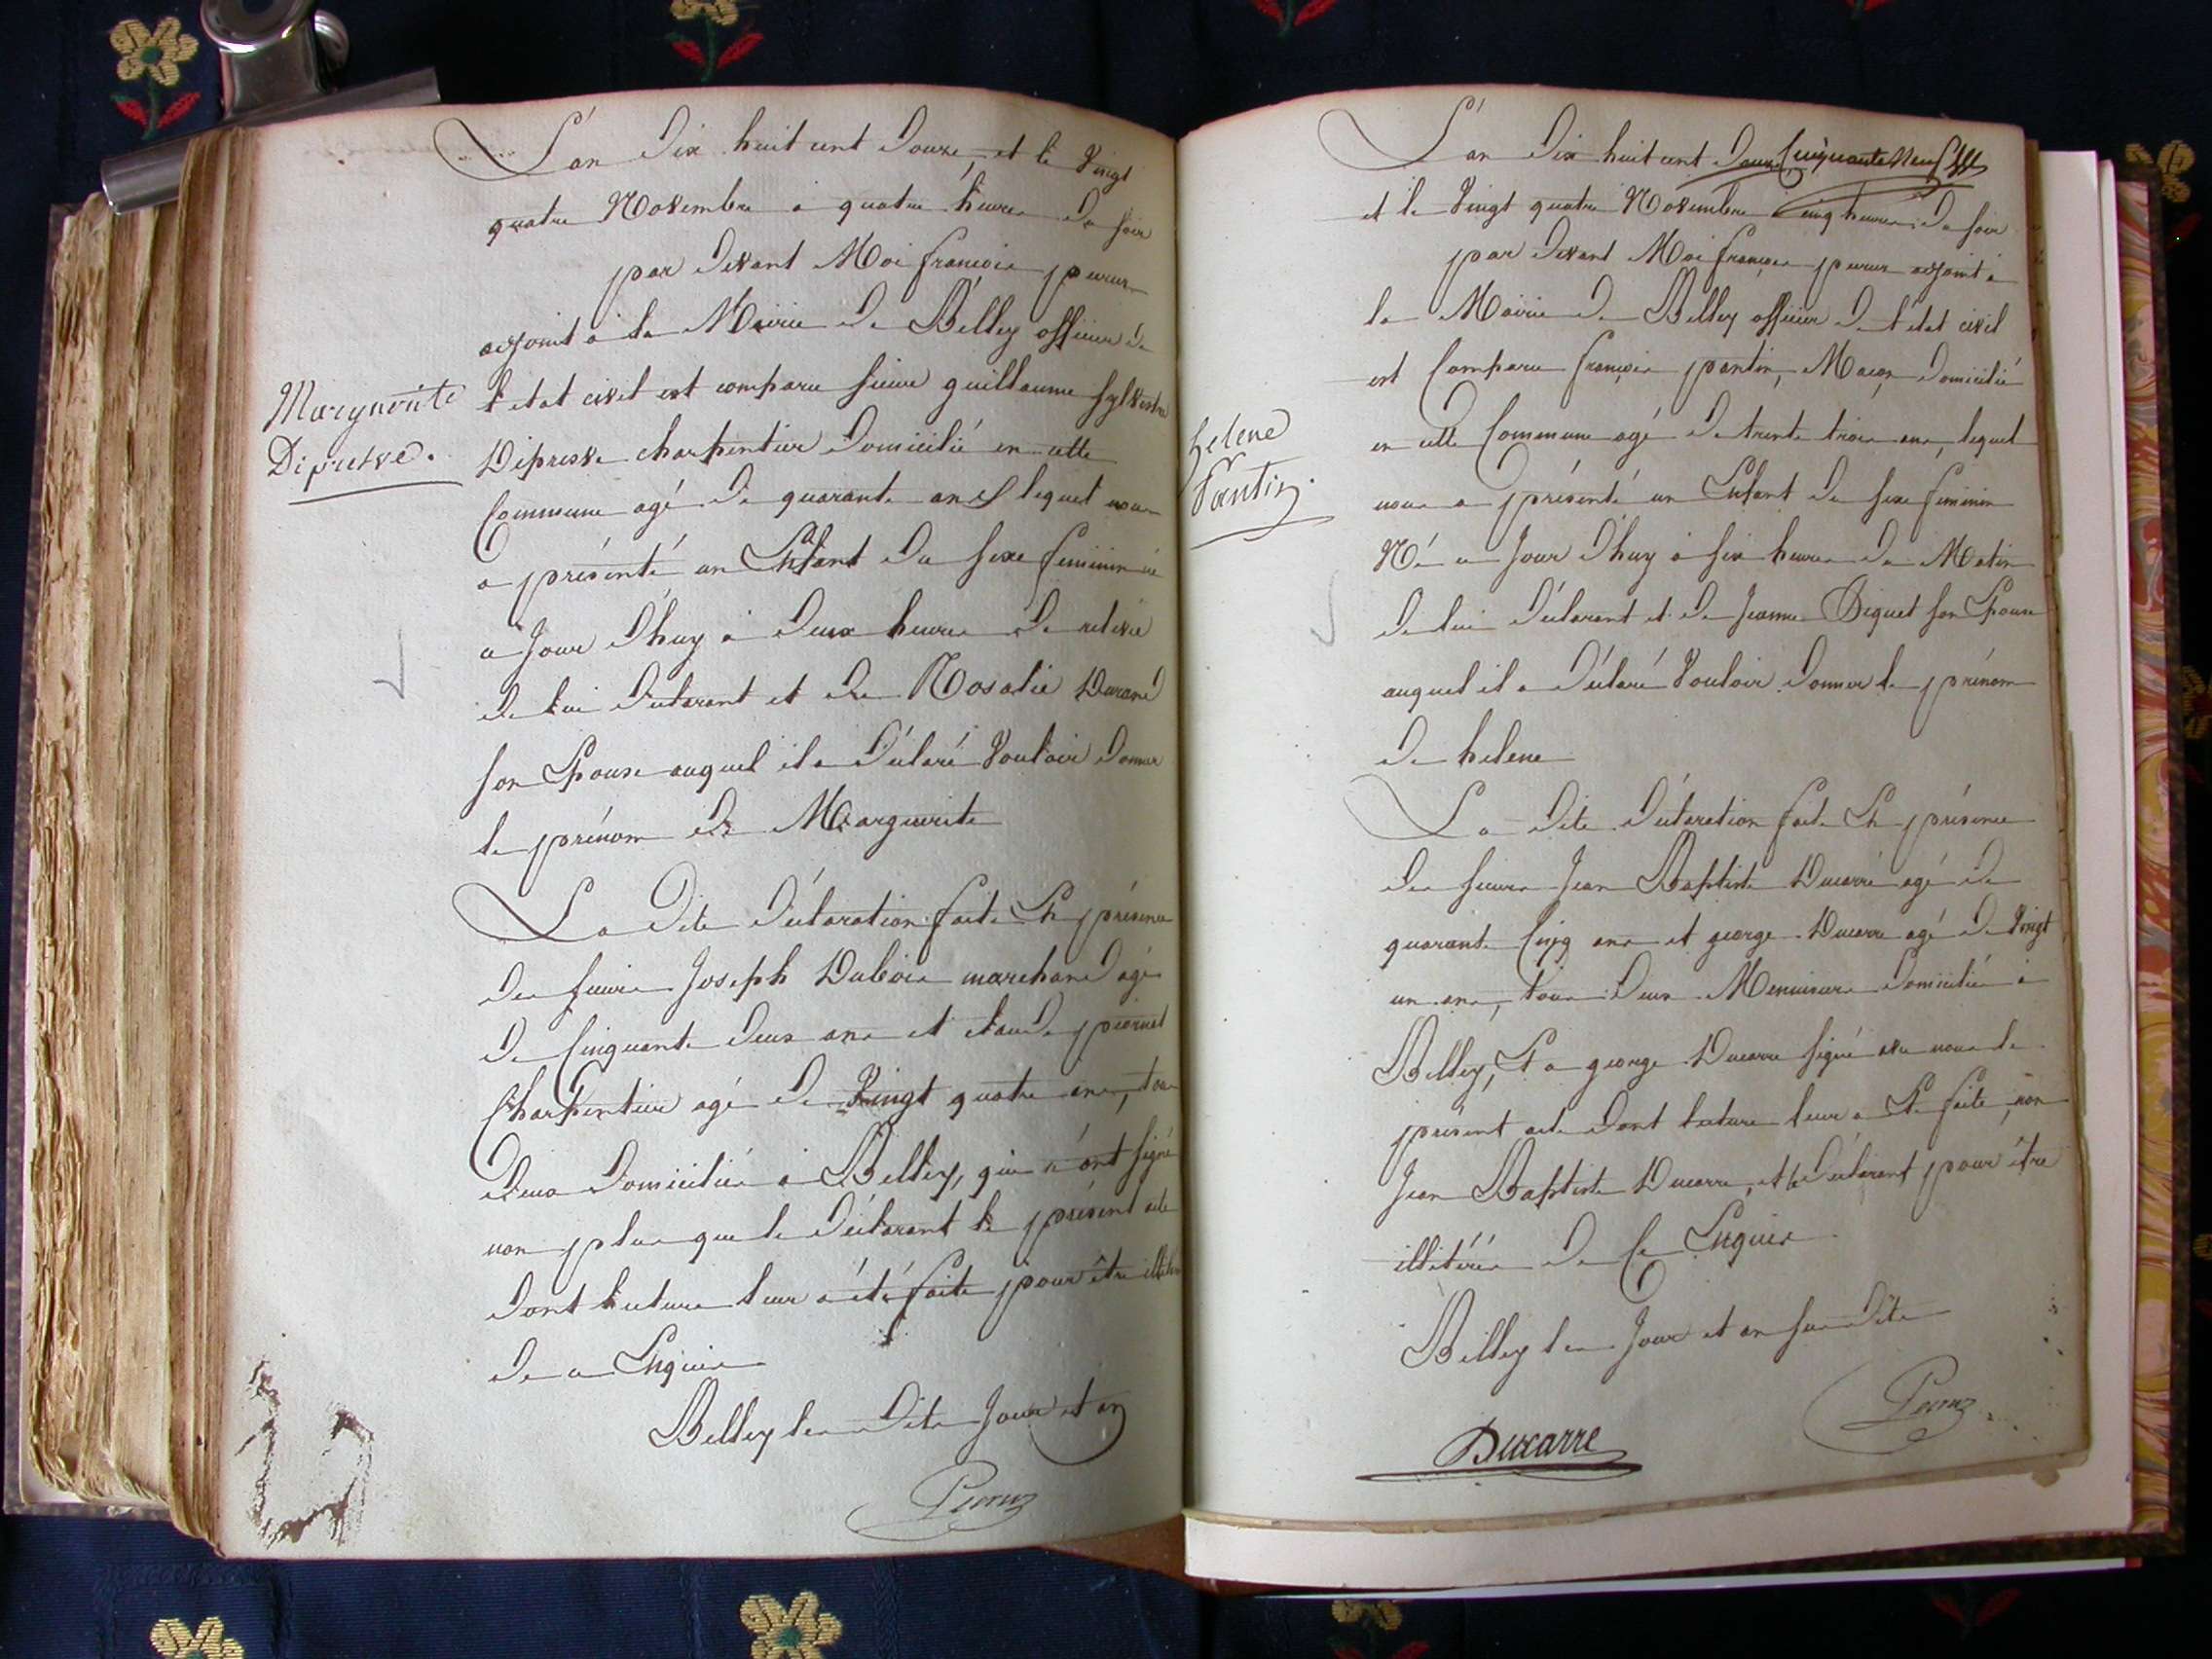 L'an dix huit cent douze, et le Vingt
quatre Novembre à quatre heures du soir
par devant Moi françois perruz
adjoint à la Mairie de Belley officier de
l'état civil est comparu sieur guillaume sylvestre
Dépresve charpentier domicilié en cette
Commune agé de quarante ans lequel nous
a présenté un Enfant du sexe feminin né
ce jour d'huy à deux heures de relevée
de lui déclarant et de Rosalie Durand
son Epouse auquel il a déclaré Vouloir donner
le prénom de Marguerite
La dite déclaration faite En présence
des sieurs Joseph Dubois marchand agé
de Cinquante deux ans et claude
Charpentier agé de Vingt quatre ans, tous
deux domiciliés à Belley, qui n'ont signé
non plus que le déclarant le présent acte
dont lecture leur a été faite pour être
de ce Enquis
Belley les dits Jour et an
Perruz
Marguerite
Dépresve.
L'an dix huit cent douze Cinquante Neuf
et le Vingt quatre Novembre Cinq heures du soir
par devant Moi françois perruz adjoint à
la Mairie de Belley officier de l'état civil
est Comparu françois pantin, Maçon domicilié
en cette Commune agé de trente trois ans, lequel
nous a présenté un Enfant du sexe feminin
Né ce Jour d'huy à six heures du Matin
de lui déclarant et de Jeanne Biquet son Epouse
auquel il a déclaré Vouloir donner le prénom
de helene
La dite déclaration faite En présence
des sieurs Jean Baptiste Ducarre agé de
quarante Cinq ans et george Ducarre agé de Vingt
un ans, tous deux Menuisiers domiciliés à
Belley, Et a george Ducarre signé avec nous le
présent acte dont lecture leur a Eté faite, non
Jean Baptiste Ducarre, et le déclarant pour être
illitérés de Ce Enquis
Belley les Jour et an sus dits
Ducarre
Perruz
helene
Pantin.